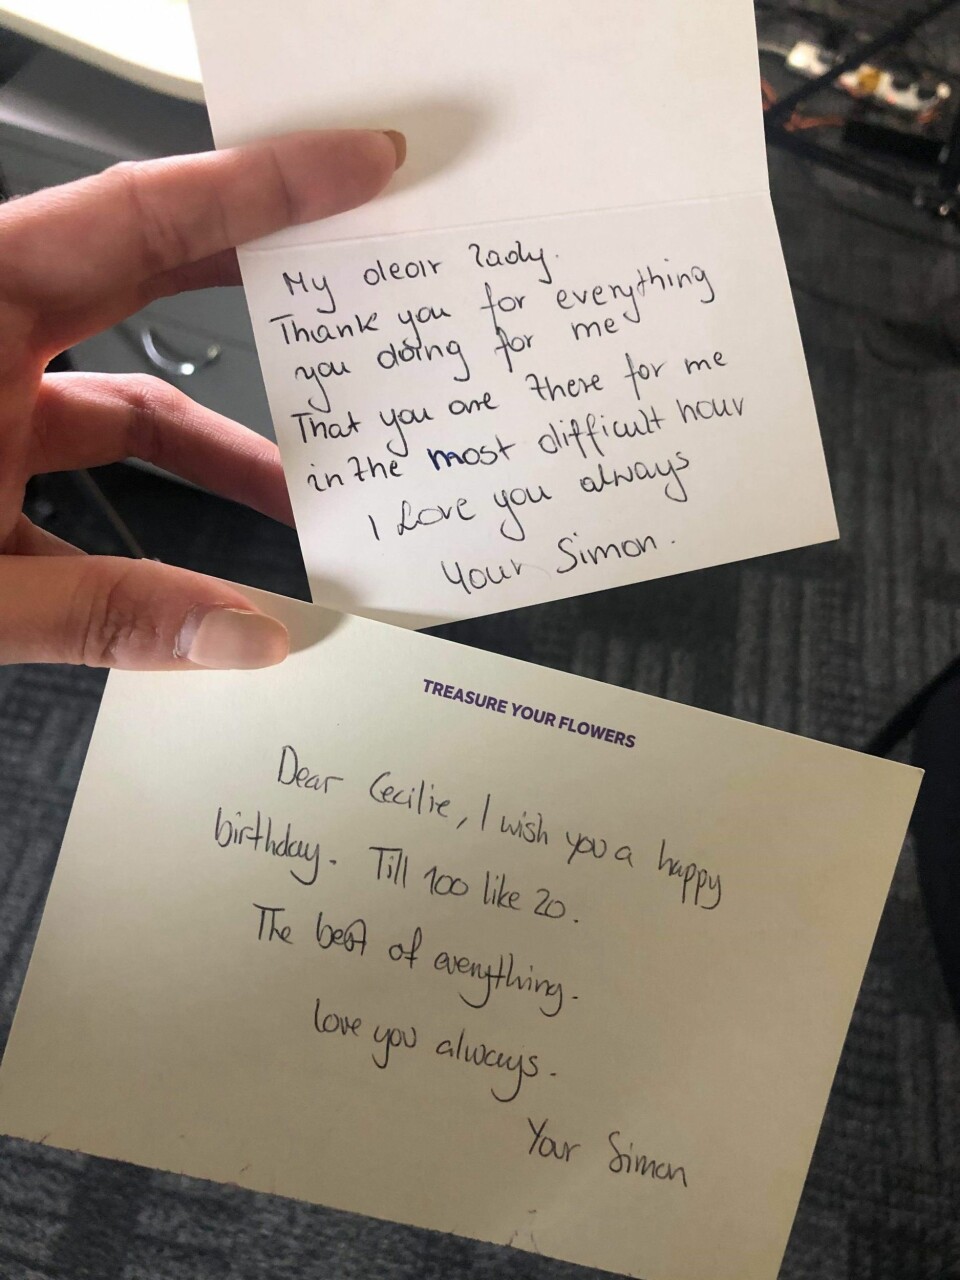 My dear lady.
Thank you for everything
you doing for me
That you are there for me
in the most difficult hour
I Love you always
Your Simon.
TREASURE YOUR FLOWERS
Dear Cecilie, I wish you a happy
birthday. Till 100 like 20.
The best of everything.
Love you always.
Your Simon